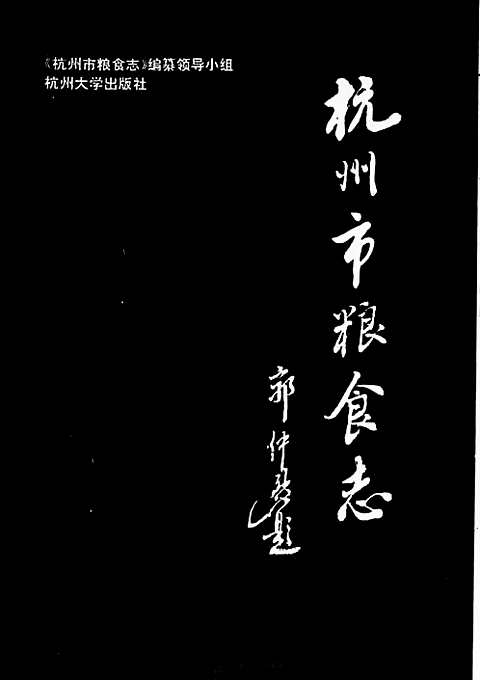 《杭州市粮食志》编纂领导小组
杭州大学出版社
杭州市粮食志
郭仲选题